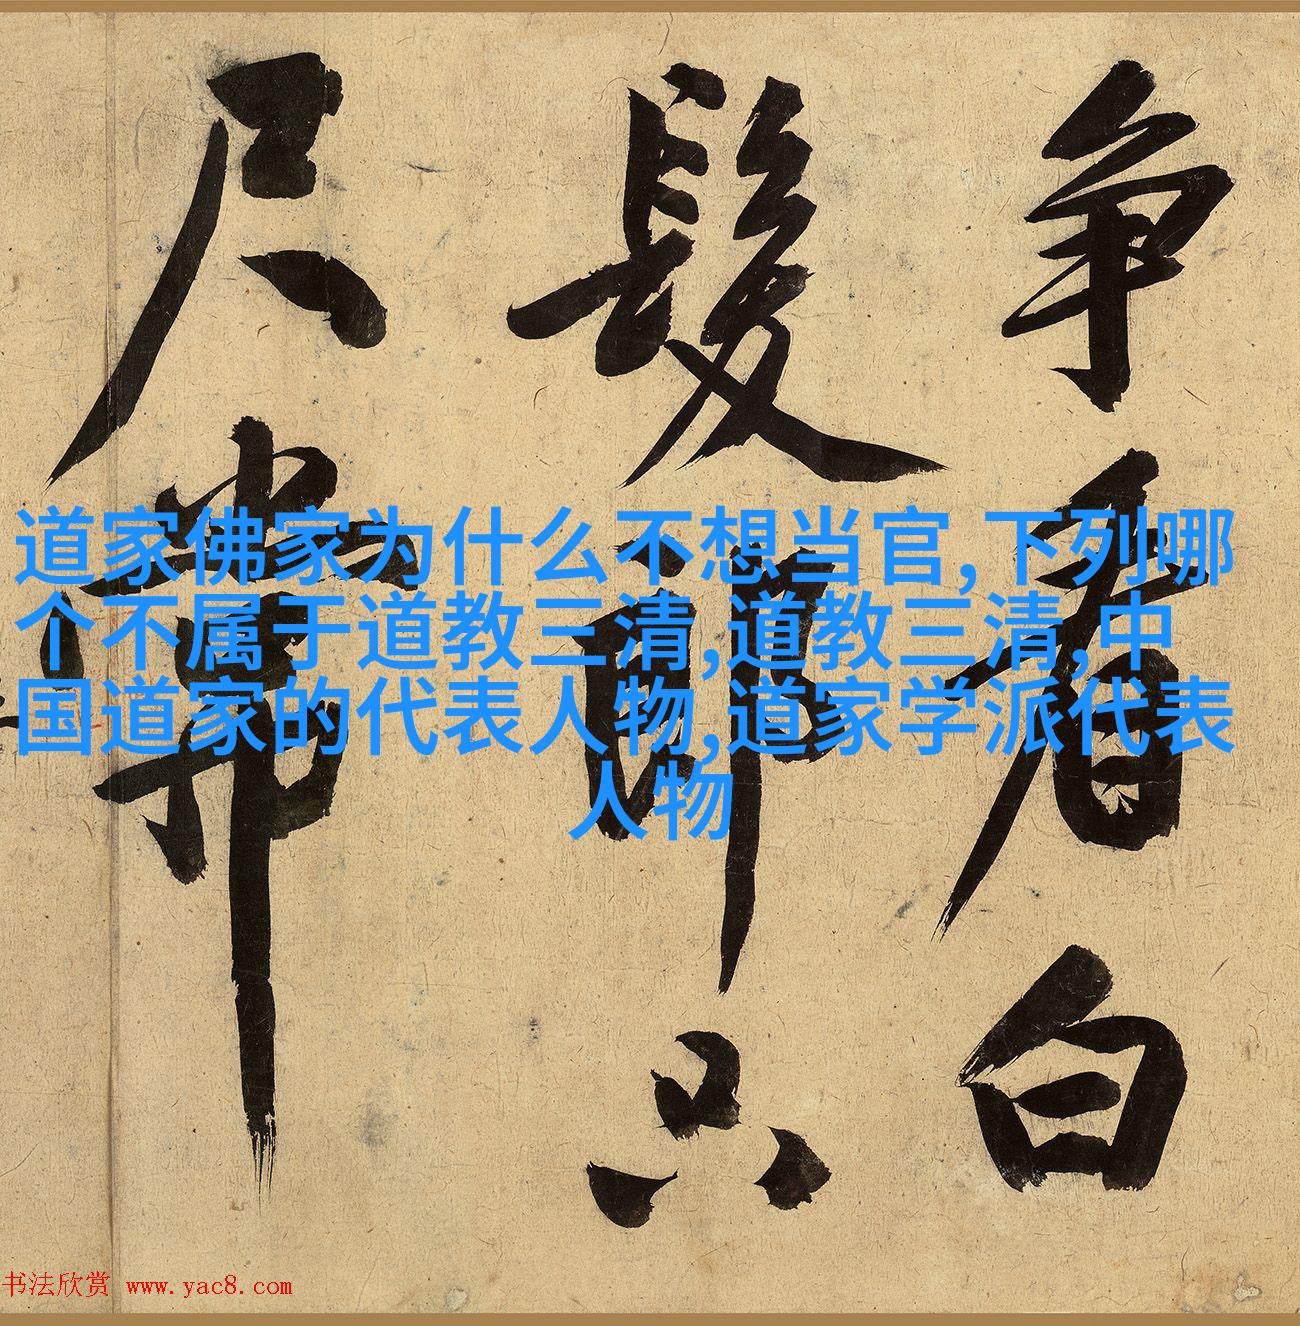 争看白
髮郎只
尺常
道家佛家为什么不想当官,下列哪
个不属于道教三清,道教三清,中
国道家的代表人物,道家学派代表
人物
书法欣赏 www.yac8.com